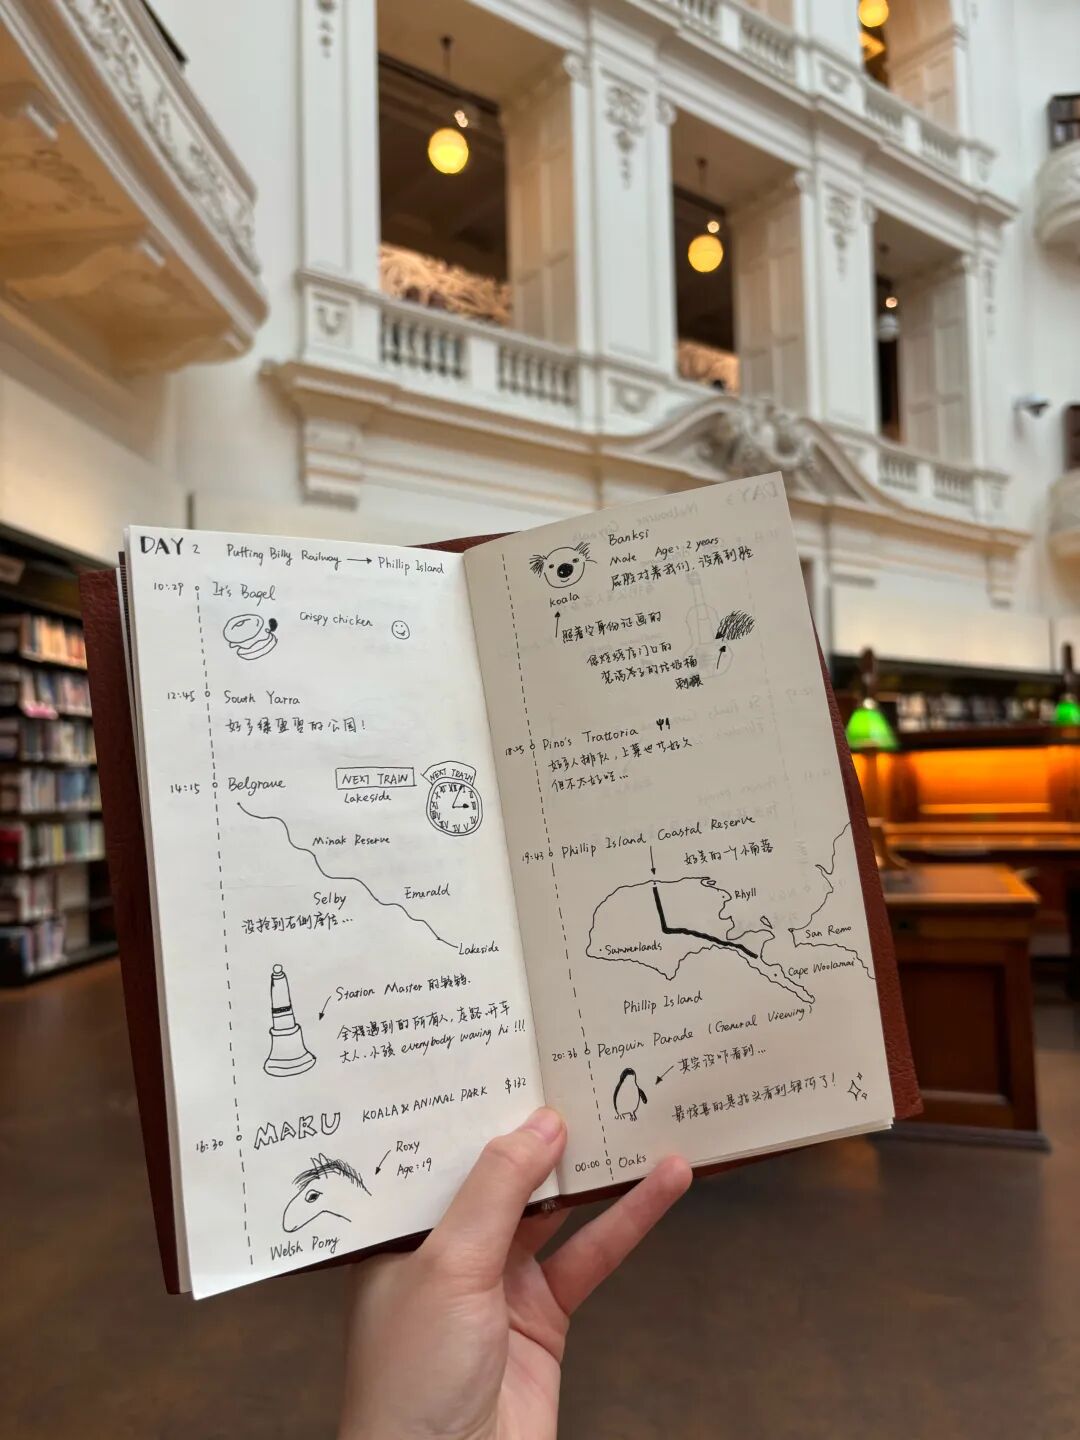 DAY 2 Puffing Billy Railway → Phillip Island
10:29 It's Bagel
Crispy chicken
12:45 South Yarra
好多绿盈盈的公园！
14:15 Belgrave
NEXT TRAIN
Lakeside
NEXT TRAIN
Minak Reserve
Selby
Emerald
没抢到右侧座位...
Lakeside
Station Master 的铃铛.
全程遇到的所有人，走路、开车
大人、小孩 everybody waving hi!!!
16:30 MARU KOALA & ANIMAL PARK $132
Roxy
Age: 19
Welsh Pony
Banksi
Male Age: 2 years
屁股对着我们，没看到脸
koala
照着它身份证画的
像烧烤店门口的
装满签子的垃圾桶
刺猬
18:25 Pino's Trattoria
好多人排队，上菜也等好久
但不太好吃...
19:43 Phillip Island Coastal Reserve
好美的一个小角落
Rhyll
Summerlands
San Remo
Cape Woolamai
Phillip Island
20:36 Penguin Parade (General Viewing)
其实没咋看到...
最惊喜的是抬头看到银河了！
00:00 Oaks
DAY 3